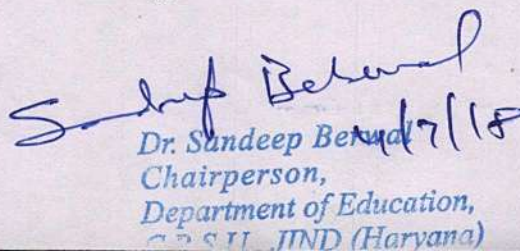 Sandeep Berwal
4/7/18
Dr. Sandeep Berwal
Chairperson,
Department of Education,
C.R.S.U. JIND (Haryana)